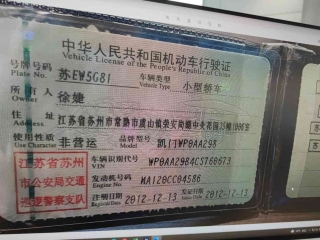 中华人民共和国机动车行驶证
Vehicle License of the People's Republic of China
号牌号码 苏EW5G81 车辆类型 小型轿车
Plate No. Vehicle Type
所有人 徐婕
Owner
住址 江苏省苏州市常熟市虞山镇荣安尚湖中央花园25幢1006室
Address
使用性质 非营运 品牌型号 凯门WP0AA298
Use Character Model
江苏省苏州 车辆识别代号 WP0AA2984CS760673
VIN
市公安局交通 发动机号码 MA120CC04586
Engine No.
巡逻警察支队 注册日期 2012-12-13 发证日期 2012-12-13
Register Date Issue Date